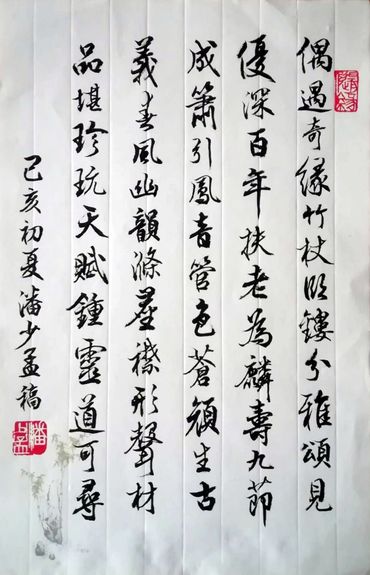 偶遇奇緣竹杖临鏤分雅頌見
優深百年扶老為麟壽九節
成簫引鳳音管色蒼顏生古
義春風幽韻滌塵襟形聲材
品堪珍玩天賦鍾靈道可尋
己亥初夏潘少孟稿